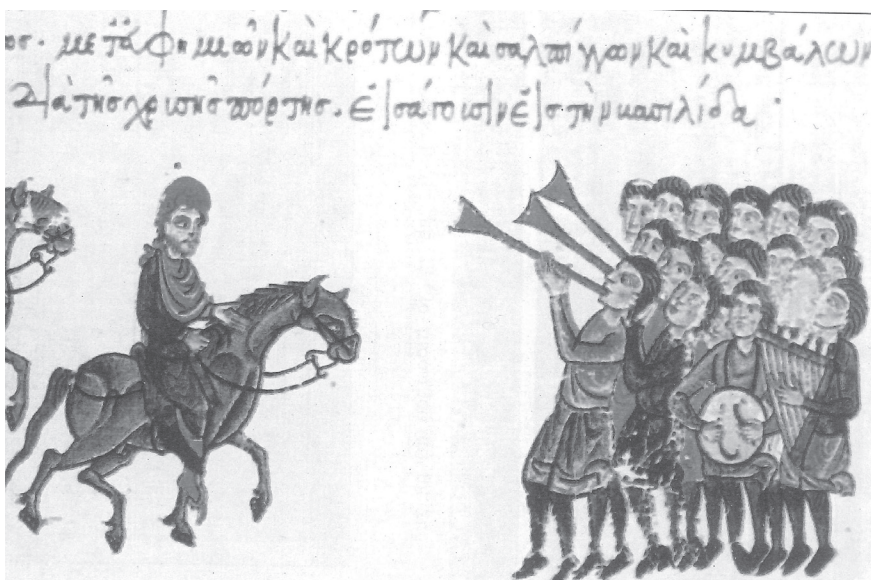 ος. μετὰ φημιῶν καὶ κρότων καὶ σαλπίγγων καὶ κυμβάλων
Διὰ τῆς χρισῆς πόρτης. εἰσάγοισιν εἰς τὴν βασιλίδα·